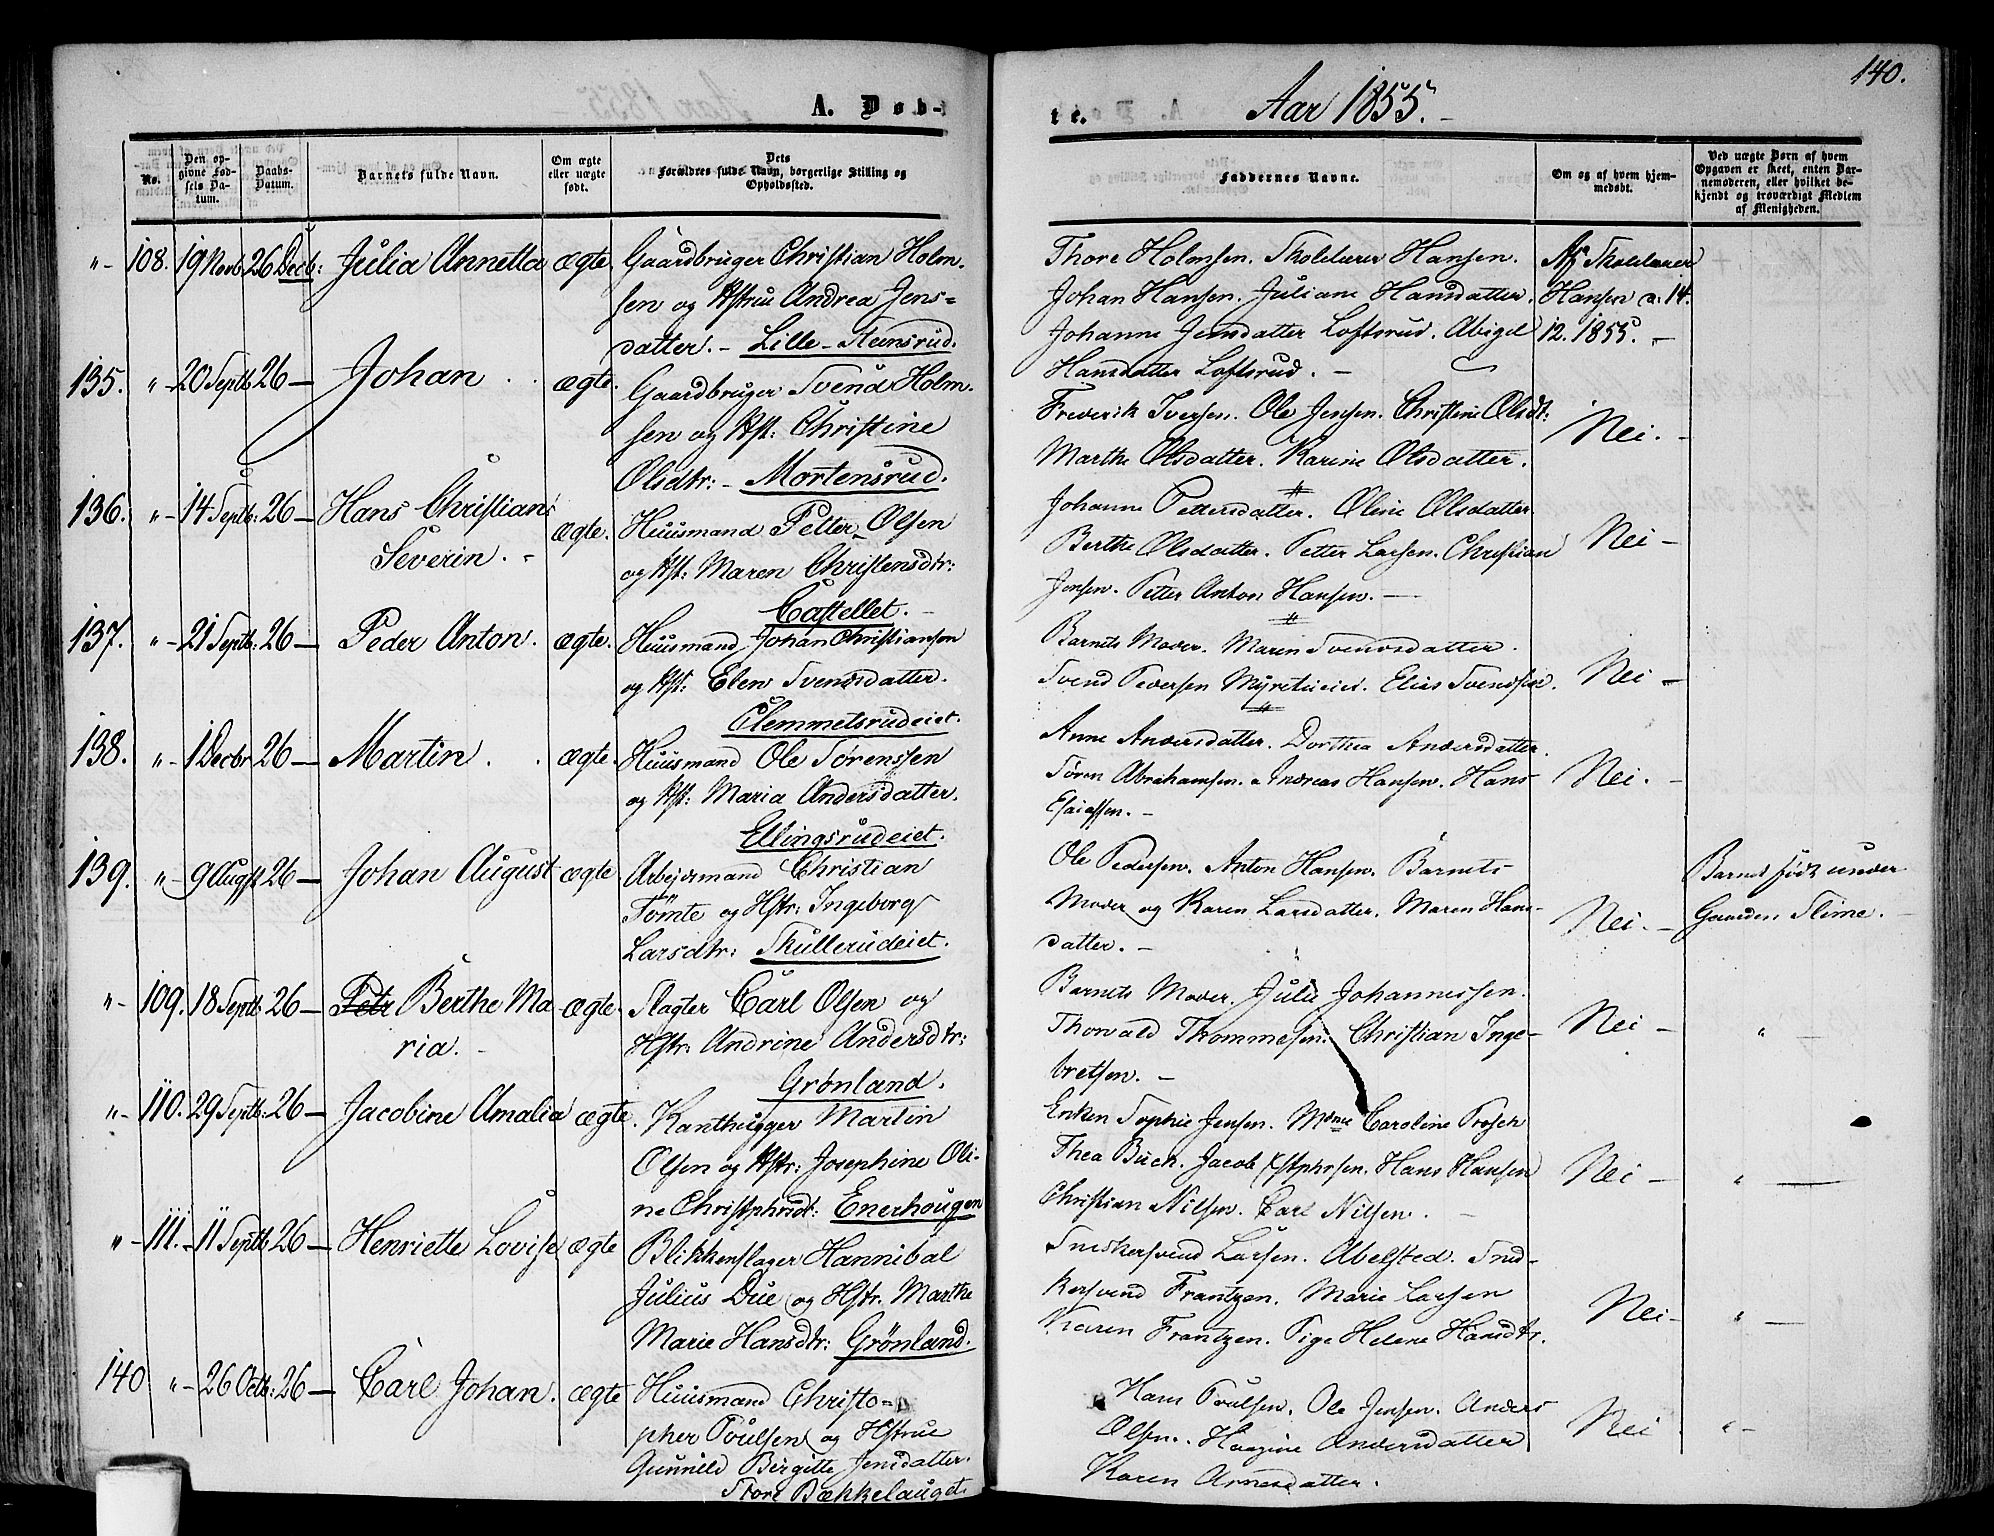 140.
A. Døb-
te.
Aar 1855.
No.
Den op-
givne Fød-
sels Da-
tum.
Daabs-
Datum.
Barnets fulde Navn.
Om ægte
eller uægte
født.
Dets
Forældres fulde Navn, borgerlige Stilling og
Opholdssted.
Faddernes Navne.
Om og af hvem hjem-
medøbt.
Ved uægte Børn af hvem
Opgaven er skeet, enten Bar-
nemoderen, eller hvilket be-
kjendt og troværdigt Medlem
af Menigheden.
"- 108. 19 Novb. 26 Decb: Julia Annetta ægte. Gaardbruger Christian Holm-
sen og Hstrue Andrea Jens-
datter. - Lille-Steensrud.
Thore Holmsen. Skolelærer Hansen.
Johan Hansen. Juliane Hansdatter.
Johanne Jensdatter Loftsrud. Abigel
Hansdatter Loftsrud. -
Af Skolelærer
Hansen d. 14.
12. 1855. -
135. "- 20 Septb 26 - Johan . . ægte. Gaardbruger Svend Holm-
sen og Hst: Christine
Olsdtr: - Mortensrud.
Frederik Iversen. Ole Jensen. Christine Olsdt:
Marthe Olsdatter. Karine Olsdatter.
Nei. -
136. "- 14 Septb: 26 - Hans Christian
Severin. - ægte. Huusmand Petter Olsen
og Hst: Maren Christensdtr:
Castellet. -
Johanne Pettersdatter. Oline Olsdatter.
Berthe Olsdatter. Petter Larsen. Christian
Jensen. Petter Anton Hansen. -
Nei -
137. "- 21 Septb: 26 - Peder Anton. ægte. Huusmand Johan Christiansen
og Hst: Elen Svendsdatter.
Clemmetsrudeiet.
Barnets Moder. Maren Svendsdatter.
Svend Pedersen Myreteiet. Elias Svendsen.
Nei -
138. "- 1 Decbr 26 - Martin. . ægte. Huusmand Ole Sørenssen
og Hst: Maria Andersdatter.
Ellingsrudeiet.
Anne Andersdatter. Dorthea Andersdatter.
Søren Abrahamsen. Andreas Hansen. Hans
Esaiassen. -
Nei. -
139. "- 9 Augst 26 - Johan August ægte Arbejdsmand Christian
Tømte og Hstr: Ingeborg
Larsdtr: Skullerudeiet.
Ole Pedersen. Anton Hansen. Barnets
Moder og Karen Larsdatter. Maren Hans-
datter. -
Nei. -
Barnet født under
Gaarden Slime. -
"- 109. 18 Septb 26 - Petr Berthe Ma
ria. - ægte. Slagter Carl Olsen og
Hstr: Andrine Andersdtr:
Grønland.
Barnets Moder. Julie Johannessen.
Thorvald Thommesen. Christian Inge-
bretsen. -
Nei - "
"- 110. 29 Septb: 26 - Jacobine Amalia ægte. Kanthugger Martin
Olsen og Hstr: Josephine Oli-
ne Christphrsdt: Enerhougen
Enken Sophie Jensen. Mdme Caroline Frosch
Thea Buch. Jacob Cstphrsen. Hans Hansen
Christian Nilsen. Carl Nilsen.
Nei - " -
"- 111. - 11 Septb 26 - Henriette Lovise ægte Blikkenslager Hannibal
Julius Due og Hstr. Marthe
Marie Hansdtr: Grønland.
Snedkersvend Larsen. Abelsted. Sned-
kersvend Frantzen. Marie Larsen
Karen Frantzen. Pige Helene Hansdtr.
Nei - " -
140 "- 26 Octb: 26 - Carl Johan. ægte Huusmand Christo-
pher Poulsen og Hstrue
Gunnild Birgitte Jensdatter.
Store Bækkelauget.
Hans Poulsen. Ole Jensen. Anders
Olsen. Haagine Andersdatter
Karen Arnesdatter.
Nei "-